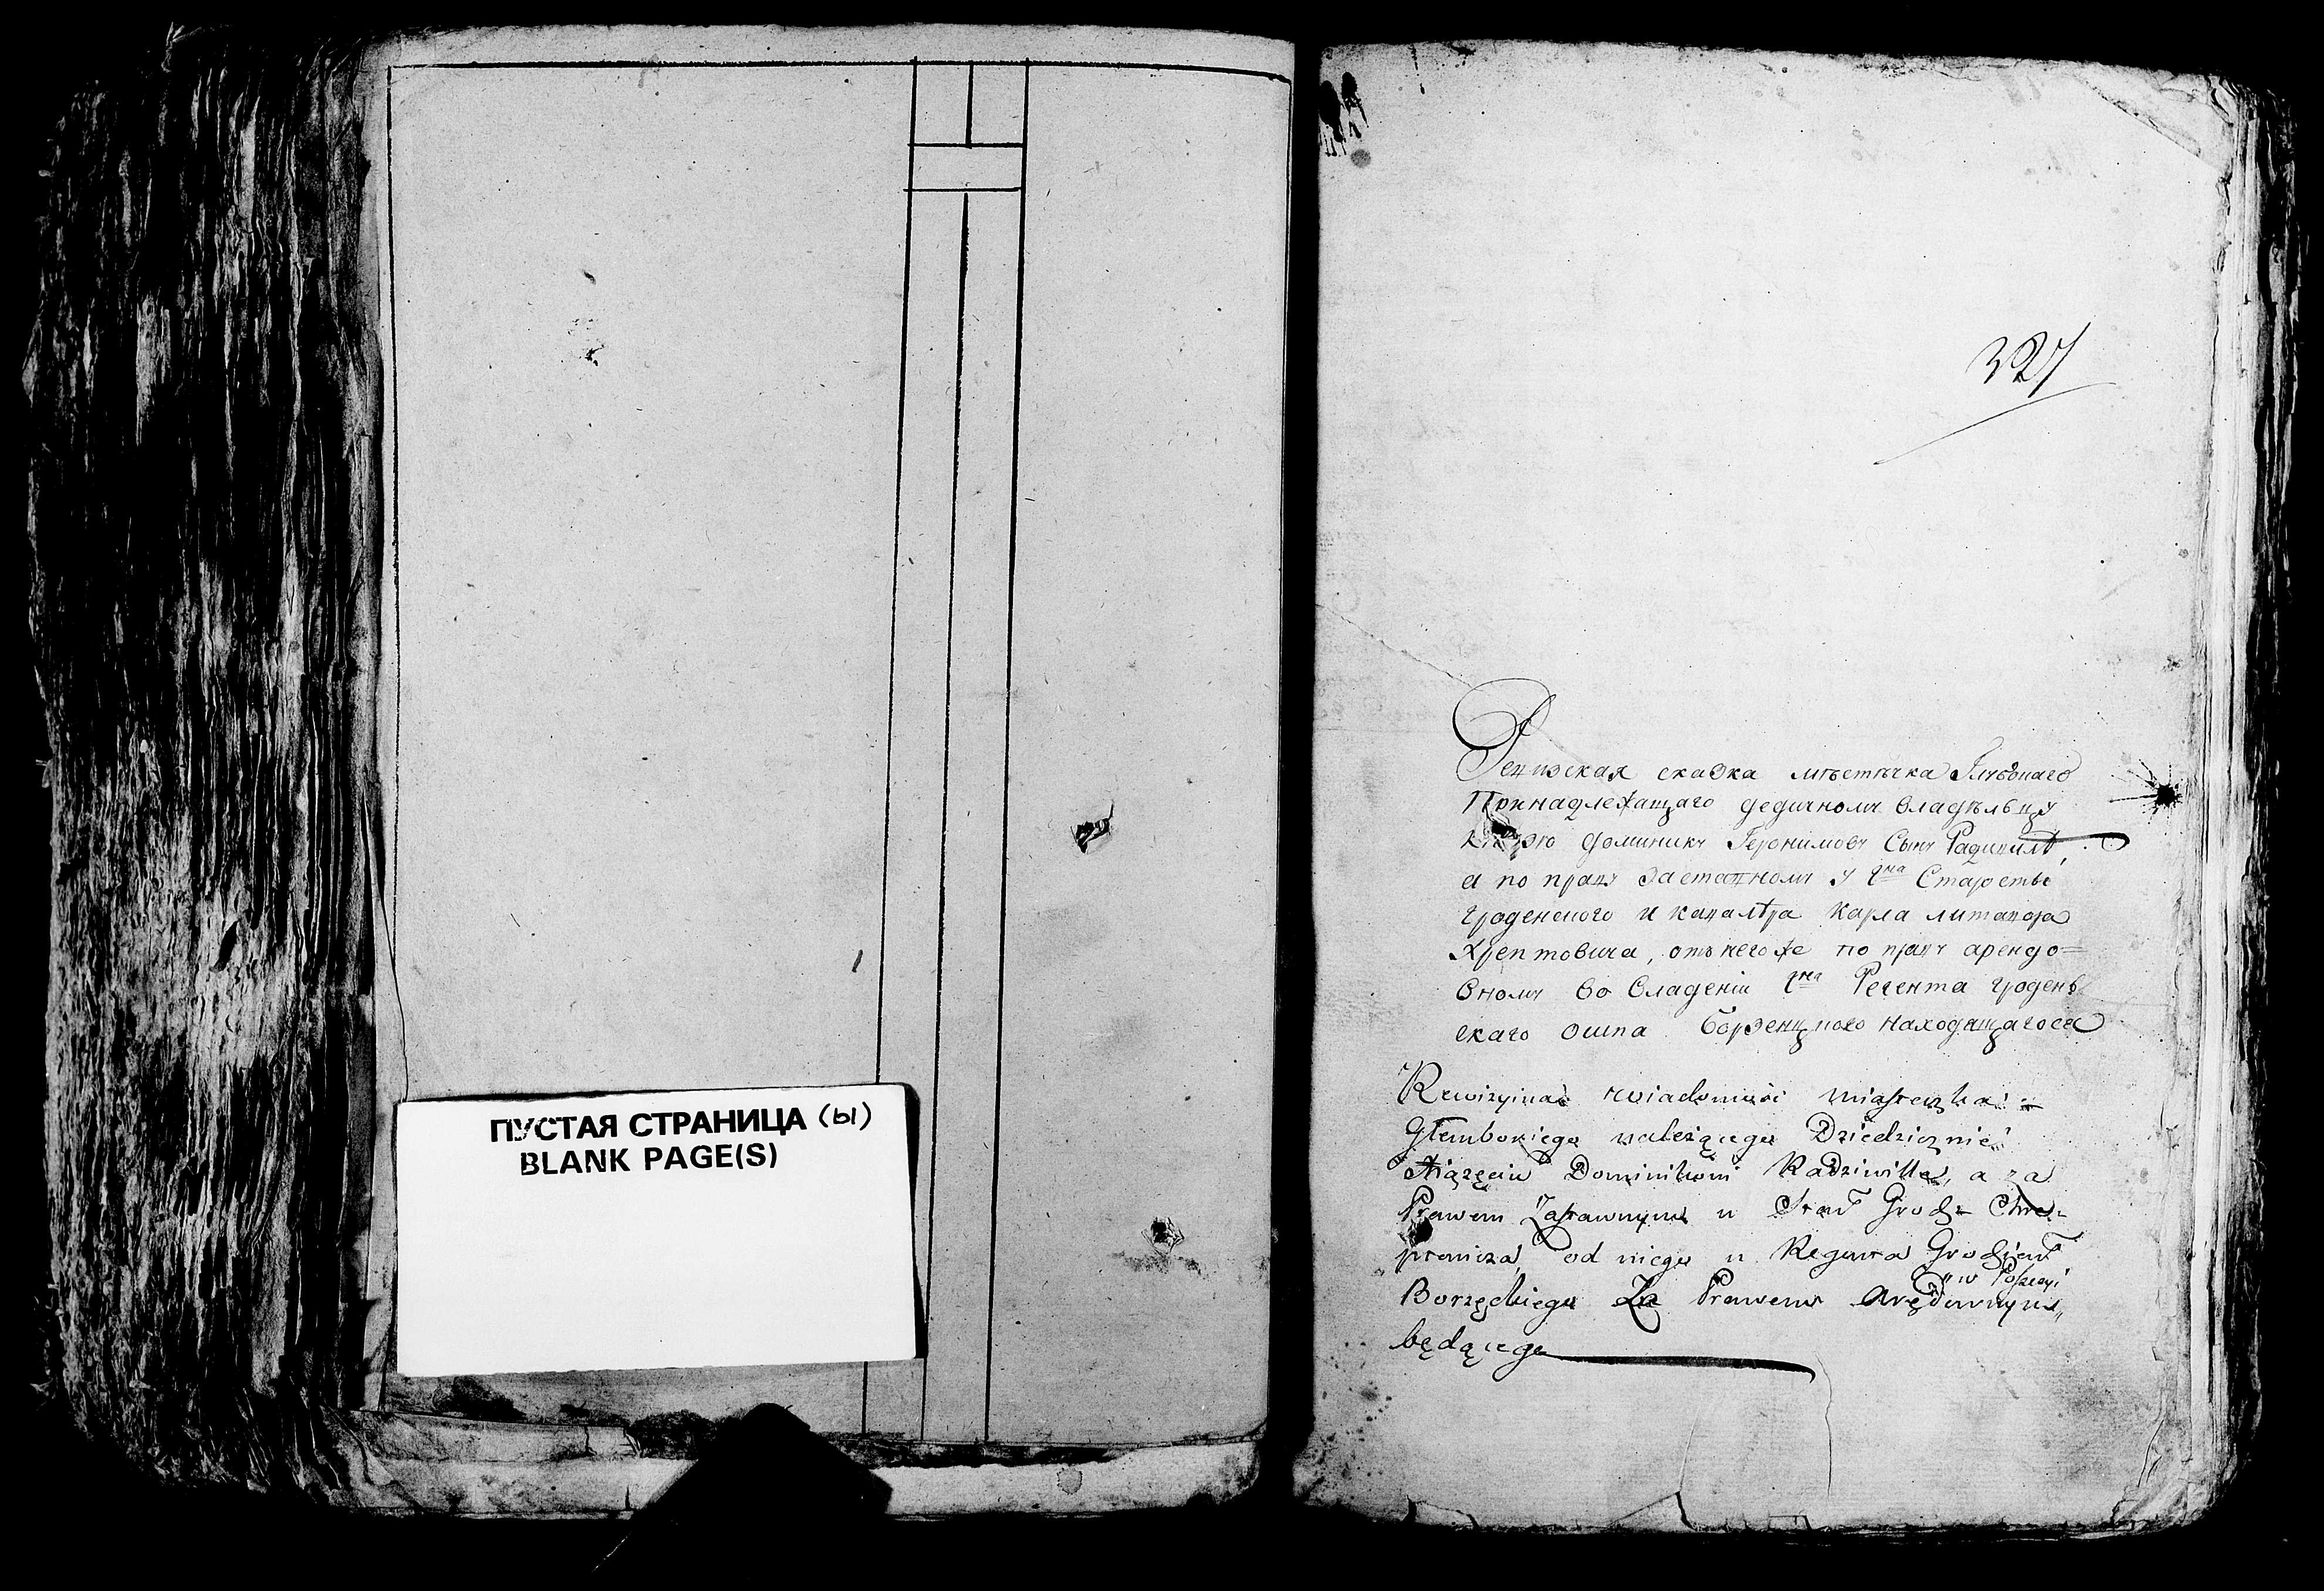 ПУСТАЯ СТРАНИЦА (Ы)
BLANK PAGE(S)
327
Ревизская сказка мѣстѣчка
Принадлежащаго дедичному владѣльцу
Князю Доминику Геронимову Сыну Радивилѣ,
а по праву заставному у гна Старосты
гроденского и кавалѣра Карла Литавора
Хрептовича, отъ негоже по праву арендо=
вному во владеніи гна Регента гроденъ
скаго находящагося
Rewizyina wiadomość miasteczka
Głembokiego należącego Dziedzicznie
Xiążęciu Dominikowi Radziwiłła, a za
Prawem Zastawnym u Grodz= Chre=
ptowicza, od niego u Regenta Grodzień
w Posesyi
Borzęckiego Za Prawem Arędownym,,
będącego